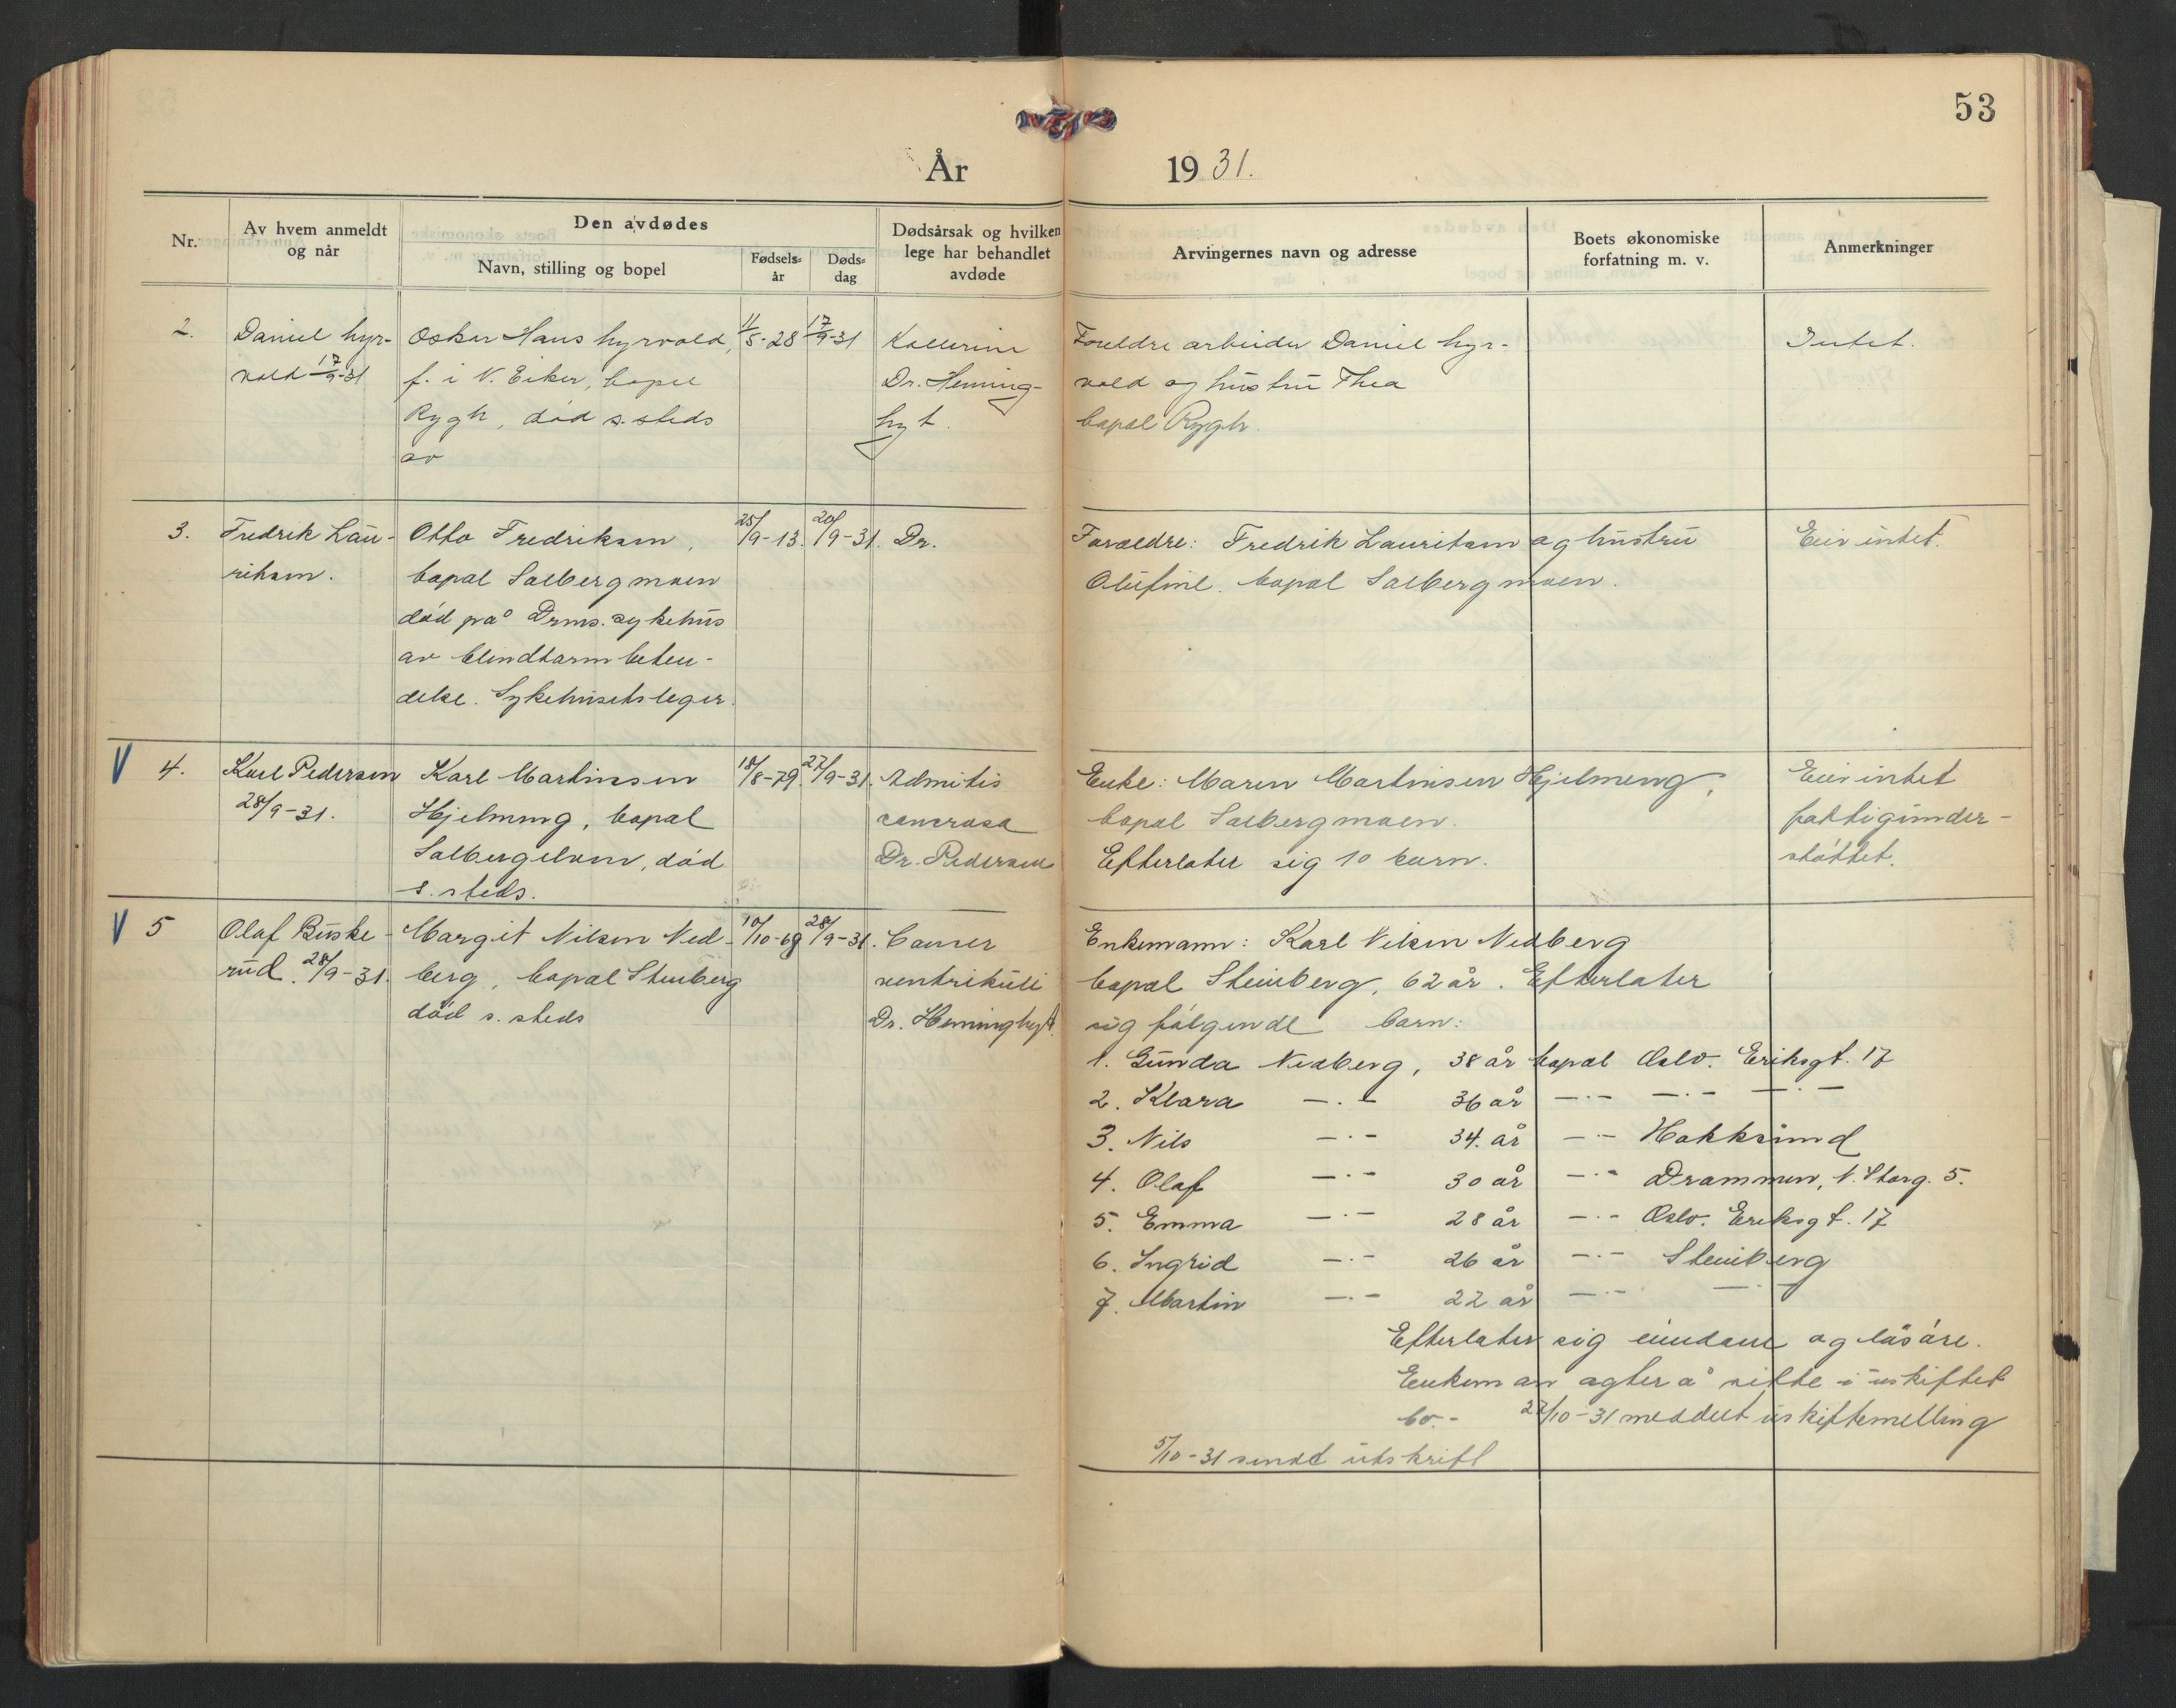 53
År 1931.
Nr.
Av hvem anmeldt
og når
Den avdødes
Navn, stilling og bopel
Fødsels-
år
Døds-
dag
Dødsårsak og hvilken
lege har behandlet
avdøde
Arvingernes navn og adresse
Boets økonomiske
forfatning m. v.
Anmerkninger
2.
Daniel Lyr-
vold 17/9-31
Oskar Hans Lyrvold,
f. i N. Eiker, bopel
Rygh, død s. steds
av
11/5-28
17/9-31
Dr. Heming-
hyt.
Foreldre arbeider Daniel Lyr-
vold og hustru Thea
bopel Rygh.
Intet.
3.
Fredrik Lau-
ritsen.
Otto Fredriksen,
bopæl Solbergmoen
død på Drms. sykehus
av blindtarmbeten-
delse. Sykehusets leger.
25/9-13.
20/9-31.
Dr.
Foræeldre: Fredrik Lauritsen og hustru
Olufine. bopæl Solbergmoen.
Eier intet.
V 4.
Karl Pedersen
28/9-31.
Karl Martinsen
Hjelmeng, bopæl
Solbergelven, død
s. steds.
18/8-79.
27/9-31.
Dr. Pedersen
Enke: Maren Martinsen Hjelmeng,
bopæl Solbergmoen.
Efterlater sig 10 barn.
Eier intet
fattigunder-
støttet.
V 5
Olaf Buske-
rud. 28/9-31.
Margit Nilsen Ned-
berg, bopæl Stenberg
død s. steds
10/10-69
28/9-31.
Cancer
ventrikuli
Dr. Heminghyt.
Enkemann: Karl Nilsen Nedberg
bopæl Steinberg, 62 år. Efterlater
sig følgende barn:
1. Gunda Nedberg, 38 år bopæl Oslo. Eriksgt. 17
2. Klara —.— 36 år —.— —.— —.—
3. Nils —.— 34. år —.— Hokksund
4. Olaf —.— 30 år —.— Drammen, N. Storg. 5.
5. Emma —.— 28 år —.— Oslo. Eriksgt. 17
6. Ingrid —.— 26 år —.— Steinberg
7. Martin —.— 22 år —.— —.—
Efterlater sig eiendom og løsøre.
Enkeman agter å sitte i uskiftet
bo.- 27/10-31 meddelt uskiftemelling
5/10-31 sendt utskrift